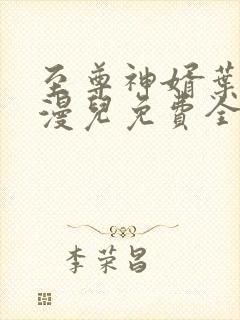 至尊神婿葉
漫兒免費全
李荣昌